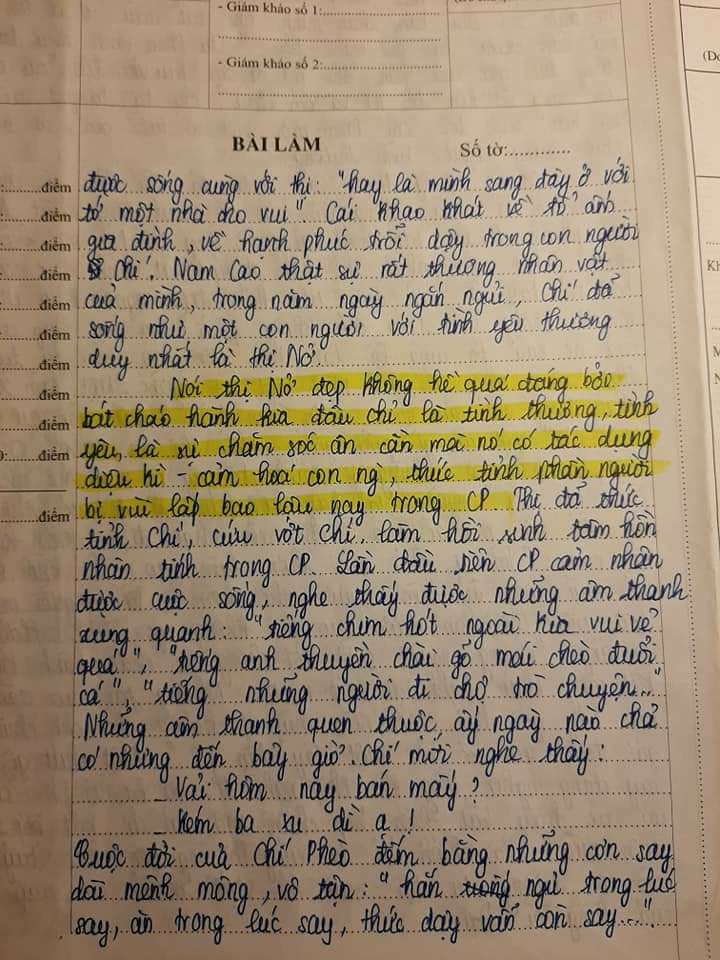 - Giám khảo số 1:
- Giám khảo số 2:
BÀI LÀM
Số tờ:
điểm được sống cùng với thị: "hay là mình sang đây ở với
điểm tớ một nhà cho vui". Cái khao khát về tổ ấm
điểm gia đình, về hạnh phúc trỗi dậy trong con người
điểm Chí. Nam Cao thật sự rất thương nhân vật
điểm của mình, trong năm ngày ngắn ngủi, Chí đã
điểm sống như một con người với tình yêu thương
điểm duy nhất là thị Nở.
điểm Nói thị Nở đẹp không hề quá đáng bởi
điểm bát cháo hành kia đâu chỉ là tình thương, tình
điểm yêu, là sự chăm sóc ân cần mà nó có tác dụng
diệu kì - cảm hoá con ng`, thức tỉnh phần người
điểm bị vùi lấp bao lâu nay trong CP. Thị đã thức
tỉnh Chí, cứu vớt Chí, làm hồi sinh tâm hồn
nhân tính trong CP. Lần đầu tiên CP cảm nhận
được cuộc sống, nghe thấy được những âm thanh
xung quanh: "tiếng chim hót ngoài kia vui vẻ
quá", "tiếng anh thuyền chài gõ mái chèo đuổi
cá", "tiếng những người đi chợ trò chuyện..."
Những âm thanh quen thuộc ấy ngày nào chả
có nhưng đến bây giờ Chí mới nghe thấy:
_ Vải hôm nay bán mấy?
_ Kém ba xu dì ạ!
Cuộc đời của Chí Phèo đếm bằng những cơn say
dài mênh mông, vô tận: "hắn ngủ trong lúc
say, ăn trong lúc say, thức dậy vẫn còn say..."